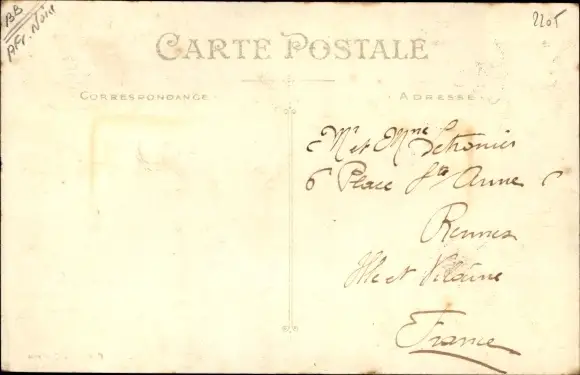 BB
Afr. Noire
2205
CARTE POSTALE
CORRESPONDANCE
ADRESSE
Mr et Mme
6 Place Ste Anne
Rennes
Ille et Vilaine
France